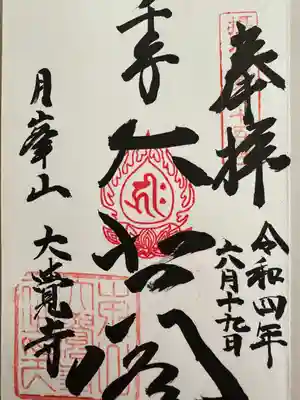 奉拝
令和四年
六月十九日
千手
大悲
月峯山 大覺寺